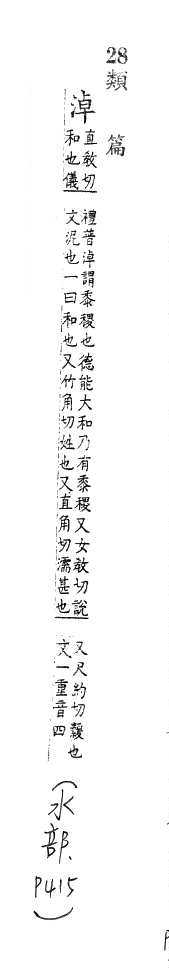 28
類篇
淖
直教切
和也儀
禮普淖謂黍稷也德能大和乃有黍稷又女教切說
文泥也一曰和也又竹角切姓也又直角切濡甚也
又尺約切䋤也
文一重音四
(水部、P415)